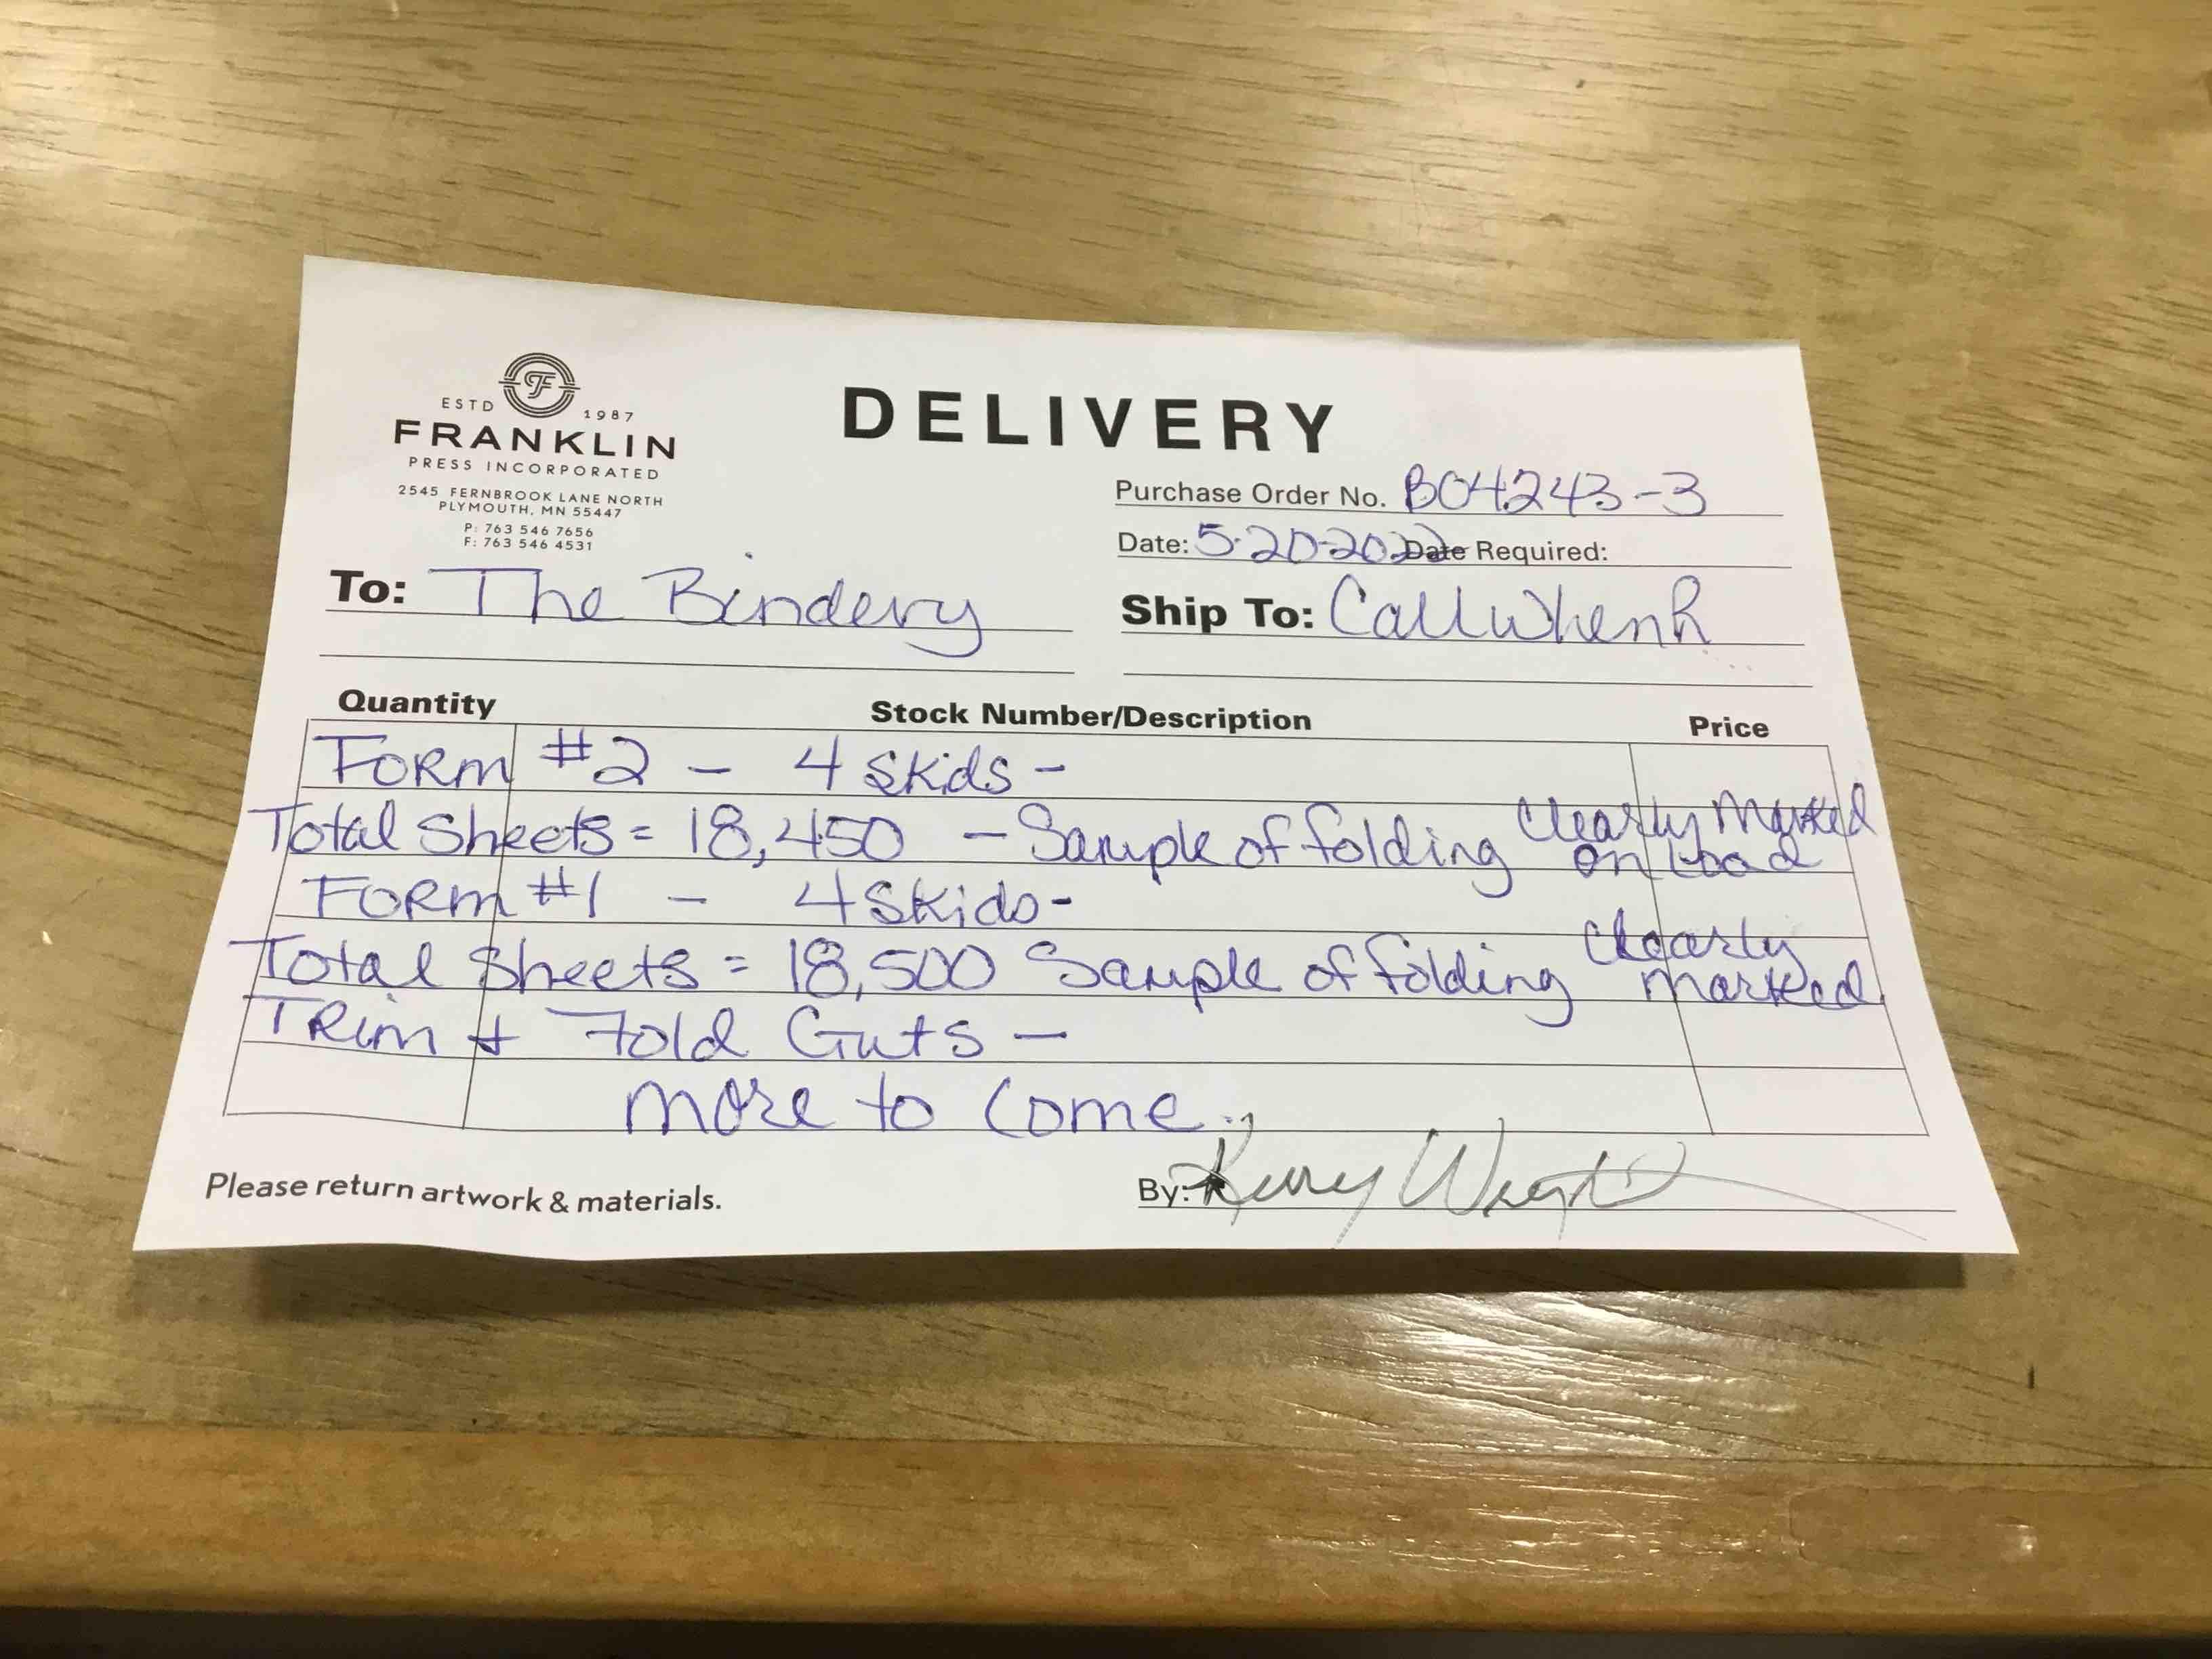 ESTD 1987
FRANKLIN
PRESS INCORPORATED
2545 FERNBROOK LANE NORTH
PLYMOUTH, MN 55447
P: 763 546 7656
F: 763 546 4531
DELIVERY
Purchase Order No. B04243-3
Date: 5-20-2022 Date Required:
To: The Bindery
Ship To: Call When R
Quantity Stock Number/Description Price
Form #2 - 4 skids -
Total Sheets = 18,450 - Sample of folding clearly marked on load
Form #1 - 4 skids -
Total Sheets = 18,500 Sample of folding clearly marked
Trim + Fold Guts -
more to come..
Please return artwork & materials.
By: Kerry